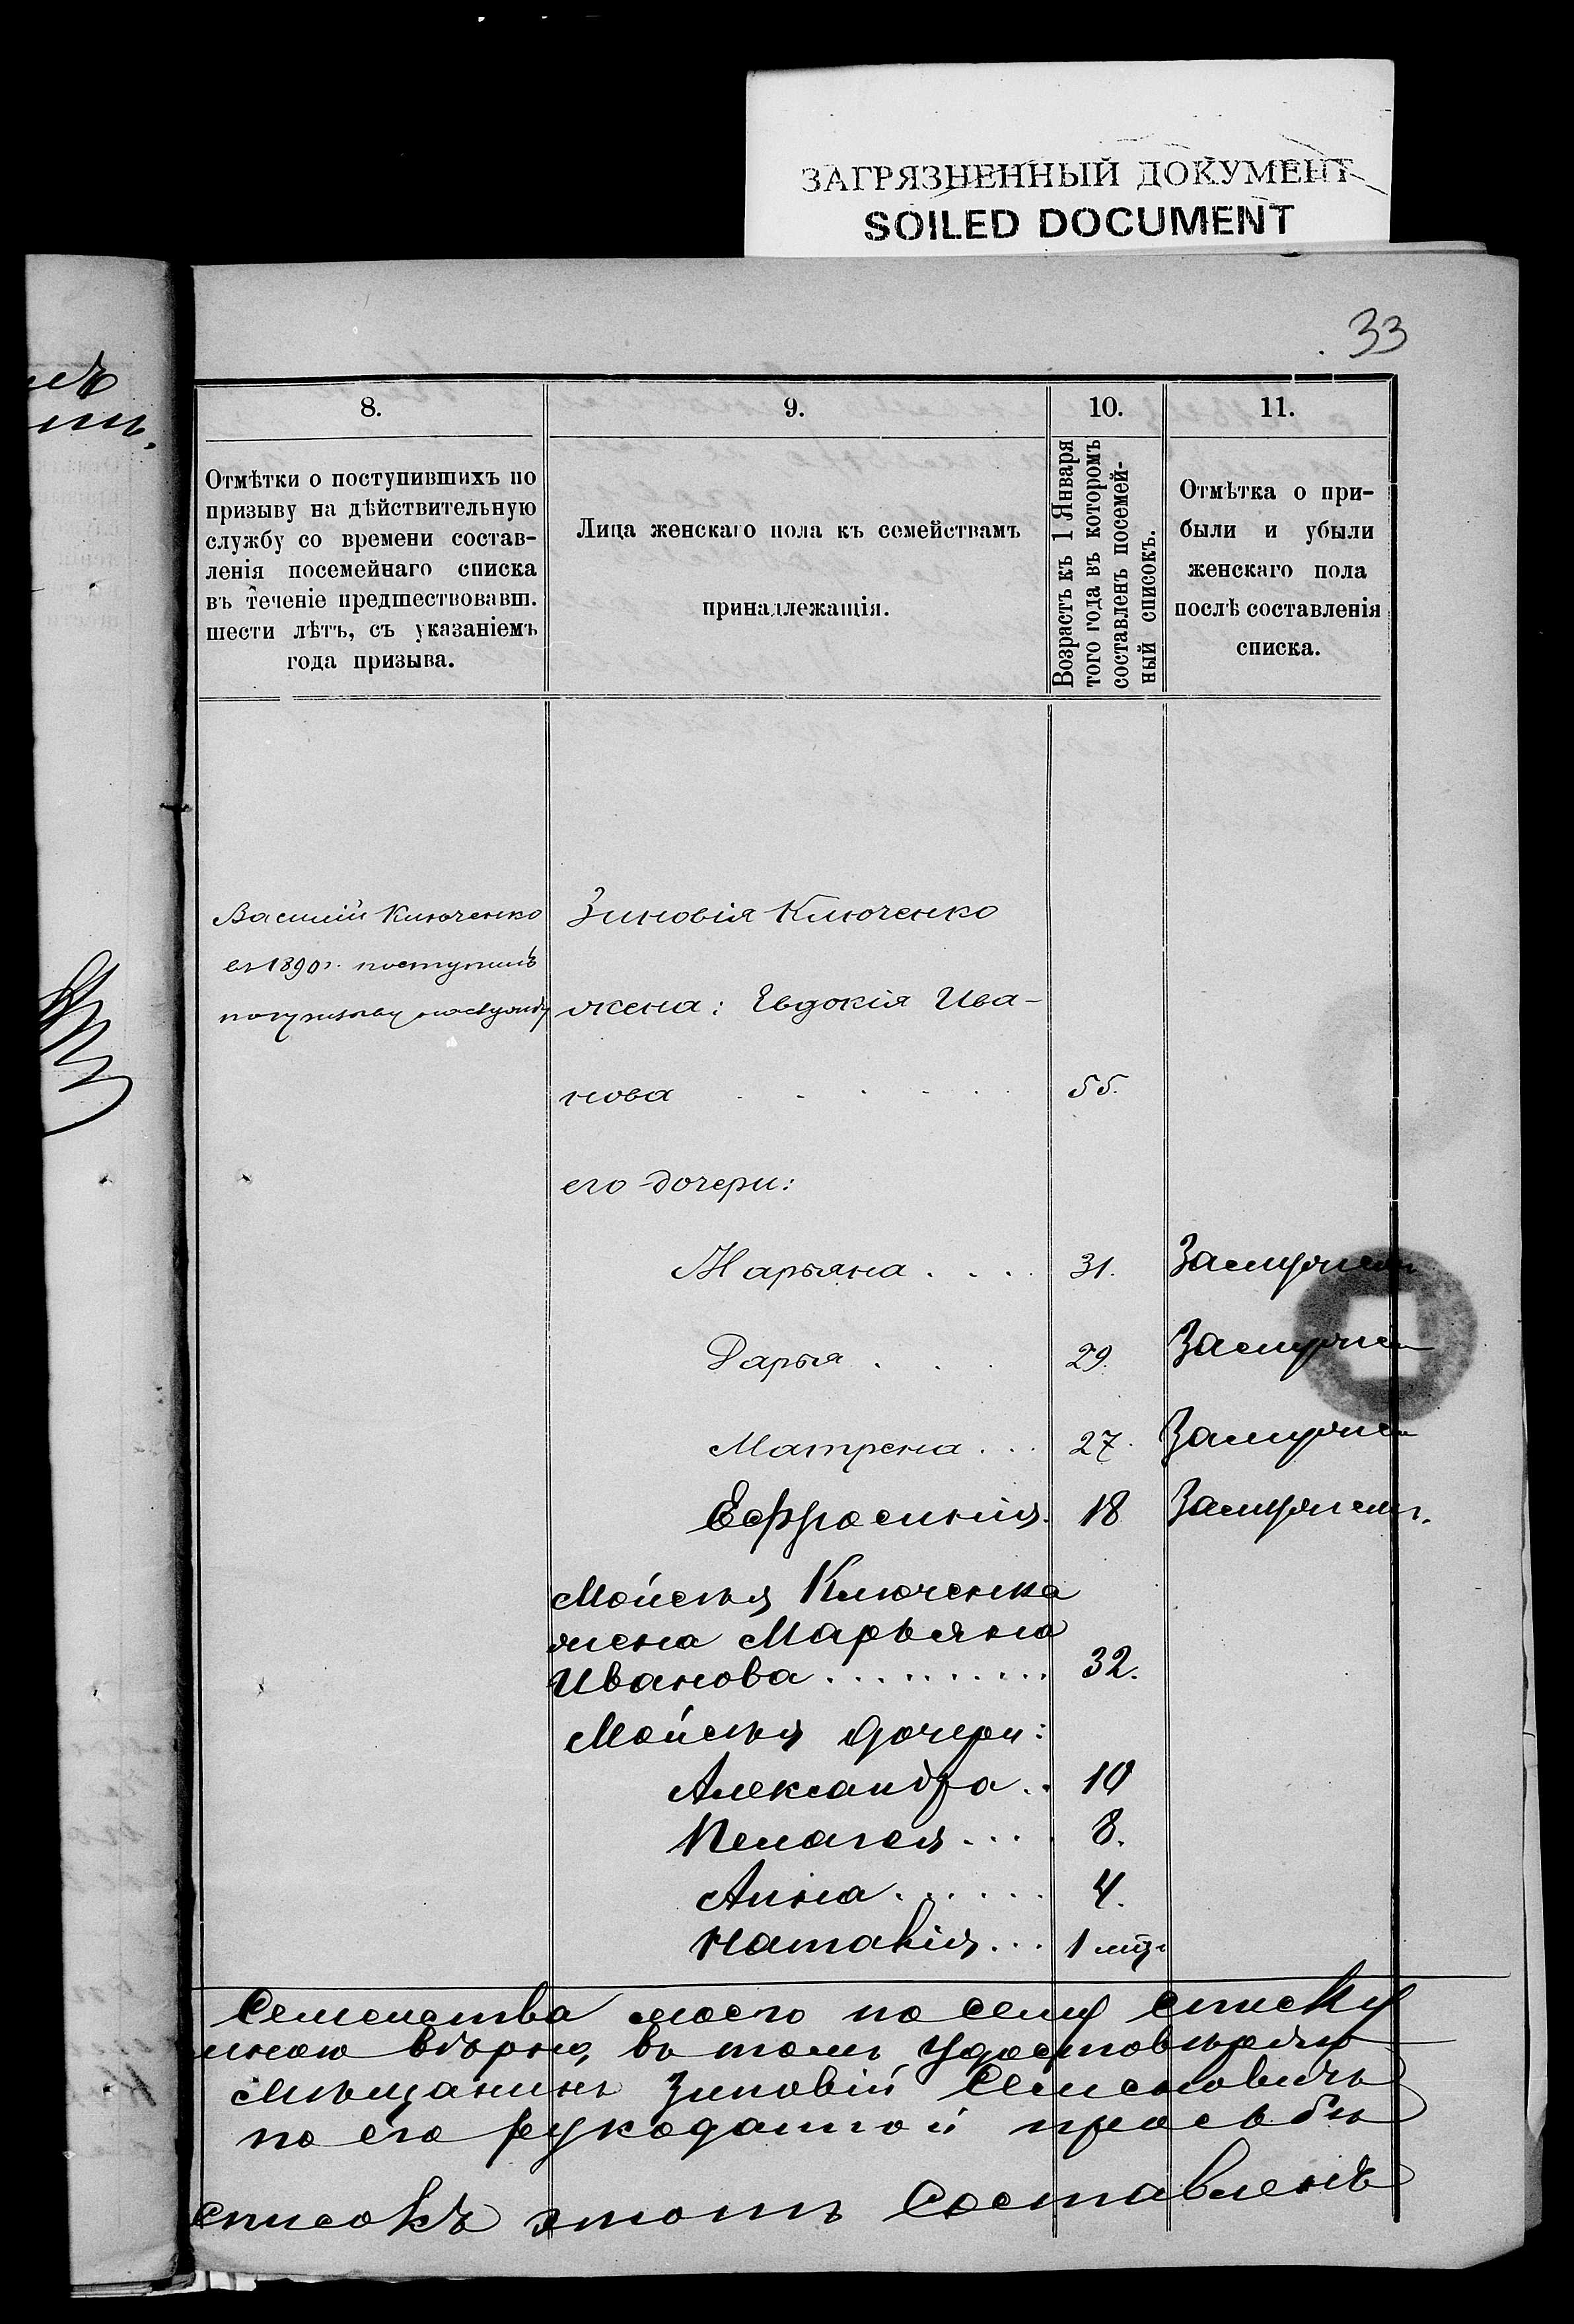 ЗАГРЯЗНЕННЫЙ ДОКУМЕНТ
SOILED DOCUMENT
33
8.
9.
10.
11.
Отмѣтки о поступившихъ по
призыву на дѣйствительную
службу со времени состав-
ленія посемейнаго списка
въ теченіе предшествовавш.
шести лѣтъ, съ указаніемъ
года призыва.
Лица женскаго пола къ семействамъ
принадлежащія.
Возрастъ къ 1 Января
того года въ которомъ
составленъ посемей-
ный списокъ.
Отмѣтка о при-
были и убыли
женскаго пола
послѣ составленія
списка.
Василій Ключенко
въ 1890 г. поступилъ
Зиновія Ключенко
жена: Евдокія Ива-
нова 55.
его дочери:
Марьяна 31. Замужем
Дарья 29. Замужем
Матрена 27. Замужем
Ефросинія 18 Замужем.
Мойсея Ключенка
жена Марьяна
Иванова 32.
Мойсея дочери:
Александра 10
Пелагея 8.
Анна 4.
Наталія 1 мѣс.
Семейства моего по сему списку
мною вѣрно, въ томъ удостовѣряю
Мѣщанинъ Зиновій Семеновичъ
по его рукоданной просьбѣ
списокъ этотъ составленъ